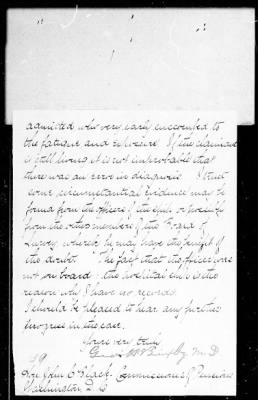 admitted who very early succumbed to
the fatigue and exposure. If the claimant
is still living it is not improbable that
there was an error in diagnosis. I trust
some circumstantial evidence may be
found from the officers of the or possibly
from the other members of the Board of
where he may have the benefit of
the doubt. The fact that the officer was
not on board the hospital ship is the
reason why I have no records.
I should be pleased to hear any further
progress in the case.
Yours very truly
M.D.
Hon. John C. Black, Commissioner of Pensions
Washington D.C.